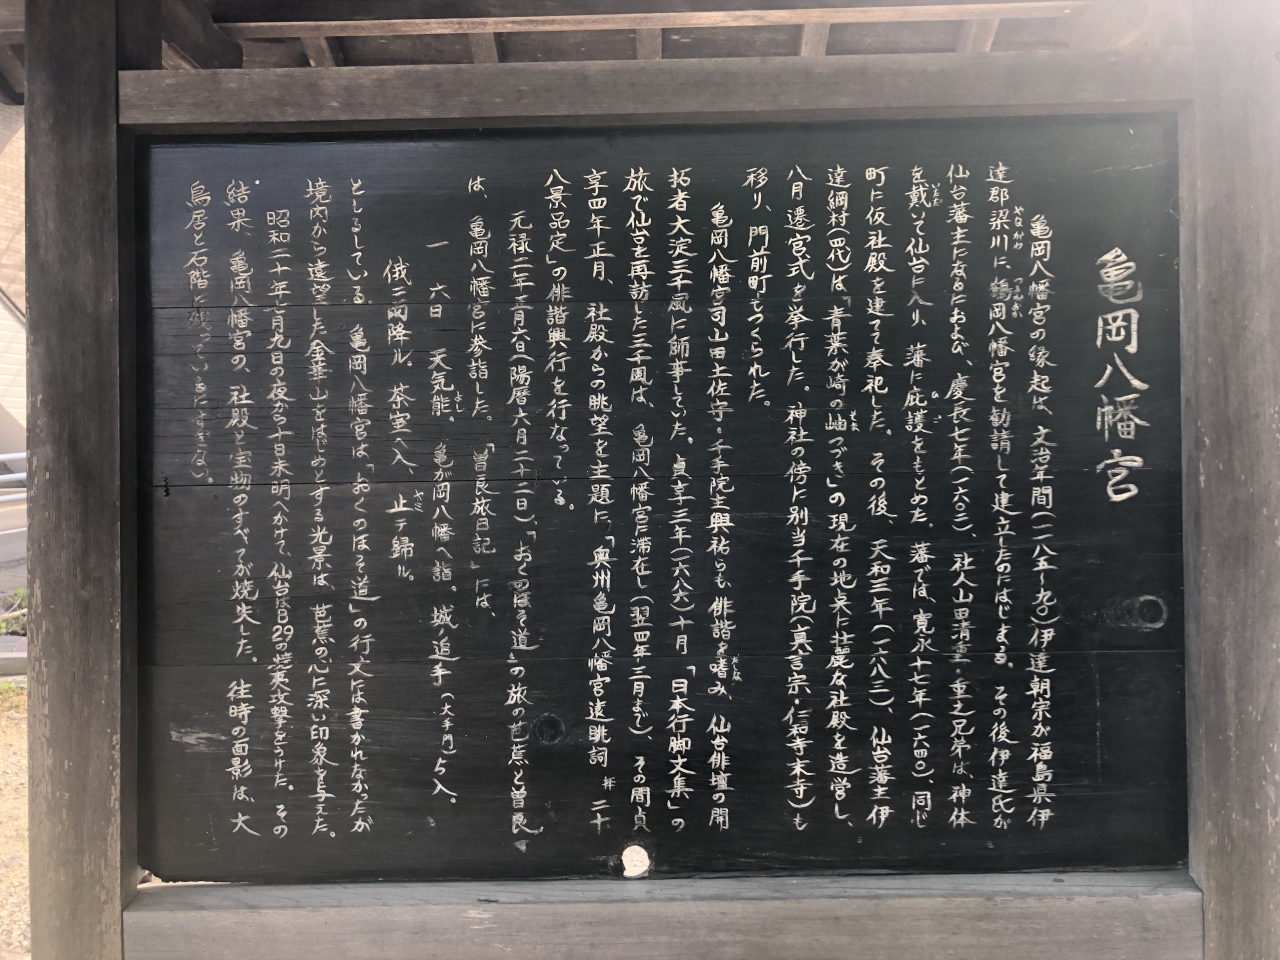 亀岡八幡宮
亀岡八幡宮の縁起は、文治年間(一一八五〜九〇)伊達朝宗が福島県伊
達郡梁川に、鶴岡八幡宮を勧請して建立したのにはじまる。その後伊達氏が
仙台藩主になるにおよび、慶長七年(一六〇二)、社人山田清重・重之兄弟は、神体
を戴いて仙台に入り、藩に庇護をもとめた。藩では、寛永十七年(一六四〇)、同じ
町に仮社殿を建てて奉祀した。その後、天和三年(一六八三)、仙台藩主伊
達綱村(四代)は、「青葉が崎の岫つづき」の現在の地点に壮麗な社殿を造営し、
八月遷宮式を挙行した。神社の傍に別当千手院(真言宗・仁和寺末寺)も
移り、門前町もつくられた。
亀岡八幡宮司山田土佐守・千手院主興祐らも、俳諧を嗜み、仙台俳壇の開
拓者大淀三千風に師事していた。貞享三年(一六八六)十月「日本行脚文集」の
旅で仙台を再訪した三千風は、亀岡八幡宮に滞在し(翌四年三月まで)、その間貞
享四年正月、社殿からの眺望を主題に、「奥州亀岡八幡宮遠眺詞 幷 二十
八景品定」の俳諧興行を行なっている。
元禄二年五月六日(陽暦六月二十二日)、「おくのほそ道」の旅の芭蕉と曽良
は、亀岡八幡宮に参詣した。「曽良旅日記」には、
一 六日 天気能。亀が岡八幡へ詣。城ノ追手(大手門)ゟ入。
俄ニ雨降ル。茶室へ入、止テ歸ル。
としるしている。亀岡八幡宮は「おくのほそ道」の行文には書かれなかったが
境内から遠望した金華山をはじめとする光景は、芭蕉の心に深い印象を与えた。
昭和二十年七月九日の夜から十日未明へかけて、仙台はB29の爆撃攻撃をうけた。その
結果、亀岡八幡宮の、社殿と宝物のすべてが焼失した。往時の面影は、大
鳥居と石階に残っているにすぎない。